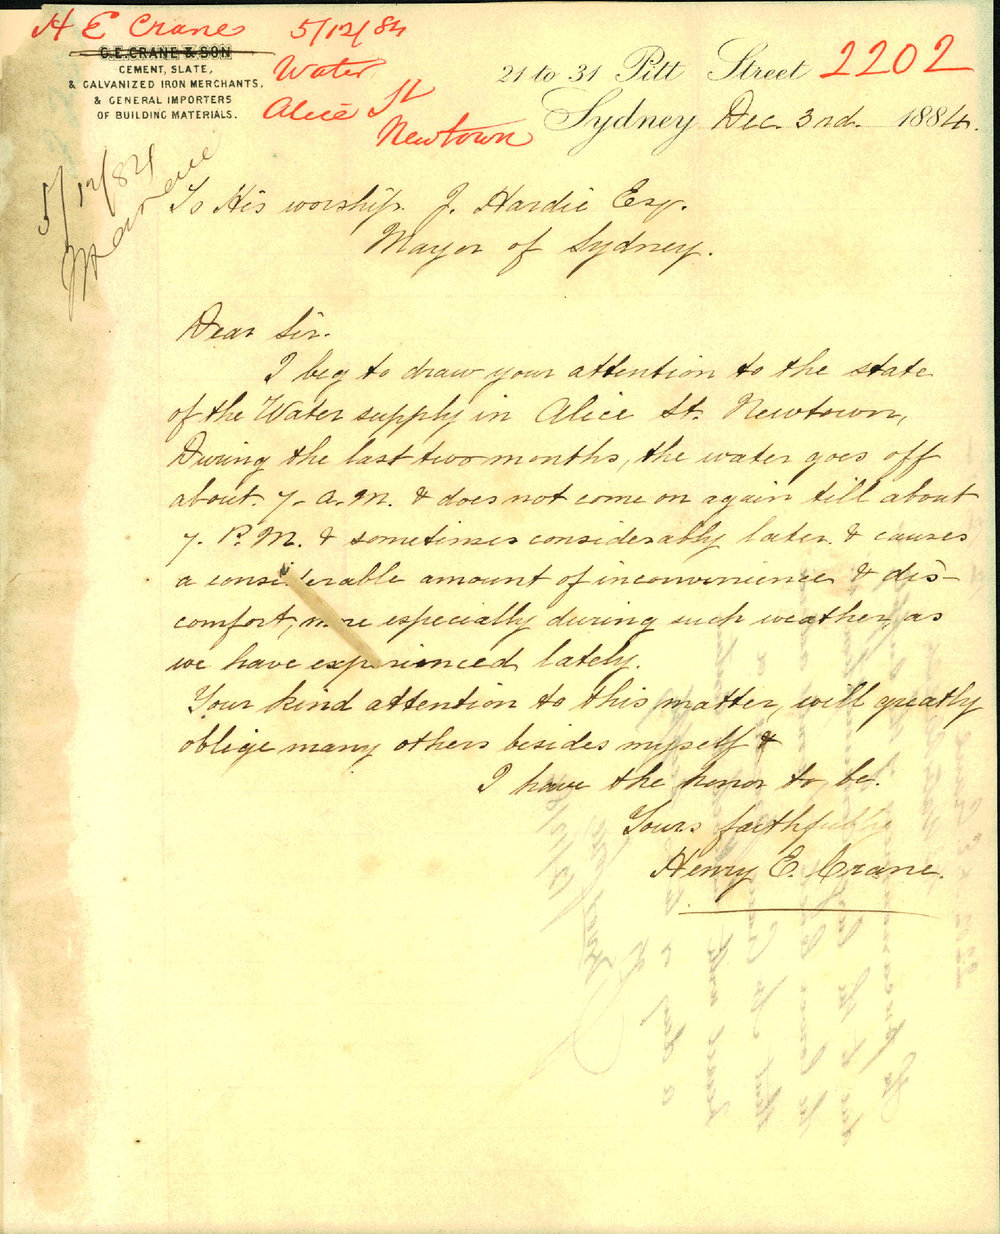 H E Crane 5/12/84
C.E. CRANE & SON
CEMENT, SLATE,
& GALVANIZED IRON MERCHANTS,
& GENERAL IMPORTERS
OF BUILDING MATERIALS.
Water
Alice St
Newtown
21 to 31 Pitt Street 2202
Sydney Dec. 3rd. 1884.
5/12/84
To His worship J. Hardie Esq.
Mayor of Sydney.
Dear Sir.
I beg to draw your attention to the state
of the Water supply in Alice St. Newtown,
During the last two months, the water goes off
about 7. A.M. & does not come on again till about
7. P.M. & sometimes considerably later & causes
a considerable amount of inconvenience & dis-
comfort, more especially during such weather as
we have experienced lately.
Your kind attention to this matter, will greatly
oblige many others besides myself &
I have the honor to be.
Yours faithfully
Henry E. Crane.